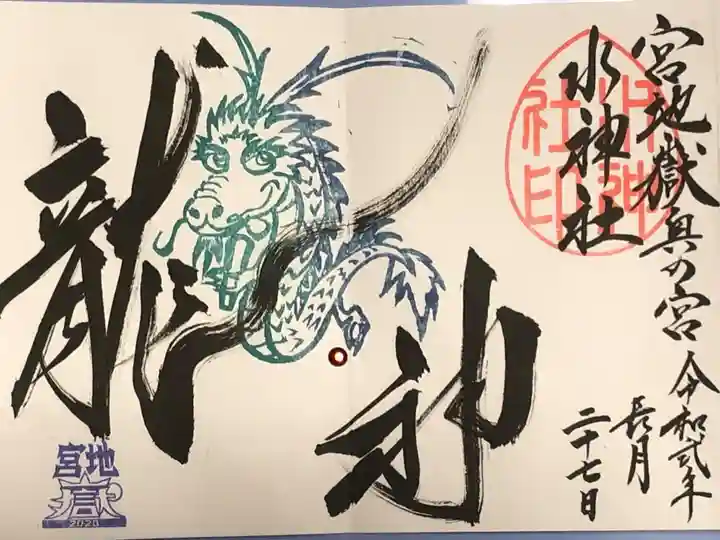 宮地嶽奥の宮
水神社
令和弐年
長月
二十七日
水神
社印
龍神
宮地
嶽
2020